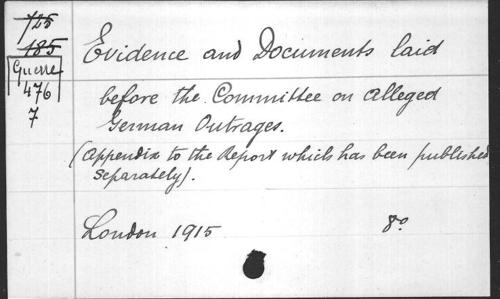 725
185
Guerre
476
7
Evidence and Documents laid
before the Committee on alleged
German Outrages.
(Appendix to the Report which has been published
separately).
London 1915 8º